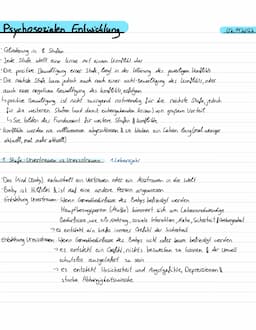 Psychosozialen Entwicklung
- Gliederung in 8 Stufen
- Jede Stufe stellt eine Krise mit einem Konflikt dar
- Die positive Bewältigung einer Stufe, liegt in der Lösung des jeweiligen Konflikts
- Die nächste Stufe kann jedoch auch nach einer nicht-bewältigung des Konflikts, oder
auch einer negativen Bewältigung des Konflikts, erfolgen
→ positive Bewältigung ist nicht zwingend notwendig für die nächste Stufe, jedoch
für die weiteren Stufen (und deren entsprechenden Krisen) von großem Vorteil
→ Sie bilden das Fundament für weitere Stufen & Konflikte
- Konflikte werden nie vollkommen abgeschlossen & sie bleiben ein Leben lang (mal weniger
aktuell, mal mehr aktuell)
1. Stufe: Urvertrauen vs Urmisstrauen 1. Lebensjahr
- Das Kind (Baby) entwickelt ein Vertrauen oder ein Misstrauen in die Welt
- Baby ist hilflos & ist auf eine andere Person angewiesen
Entstehung Urvertrauen: Wenn Grundbedürfnisse des Babys befriedigt werden
Hauptbezugsperson (Mutter) kümmert sich um Lebensnotwendige
Bedürfnisse, wie z.B. Nahrung, soziale Interaktion, Nähe, Sicherheit & Geborgenheit
→ es entsteht ein tiefes inneres Gefühl der Sicherheit
Entstehung Urmisstrauen: Wenn Grundbedürfnisse des Babys nicht oder kaum befriedigt werden
→ es entsteht ein Gefühl, nichts bewirken zu können & der Umwelt
schutzlos ausgeliefert zu sein
→ es entsteht Unsicherheit und Angstgefühle, Depressionen &
starke Abhängigkeitswünsche